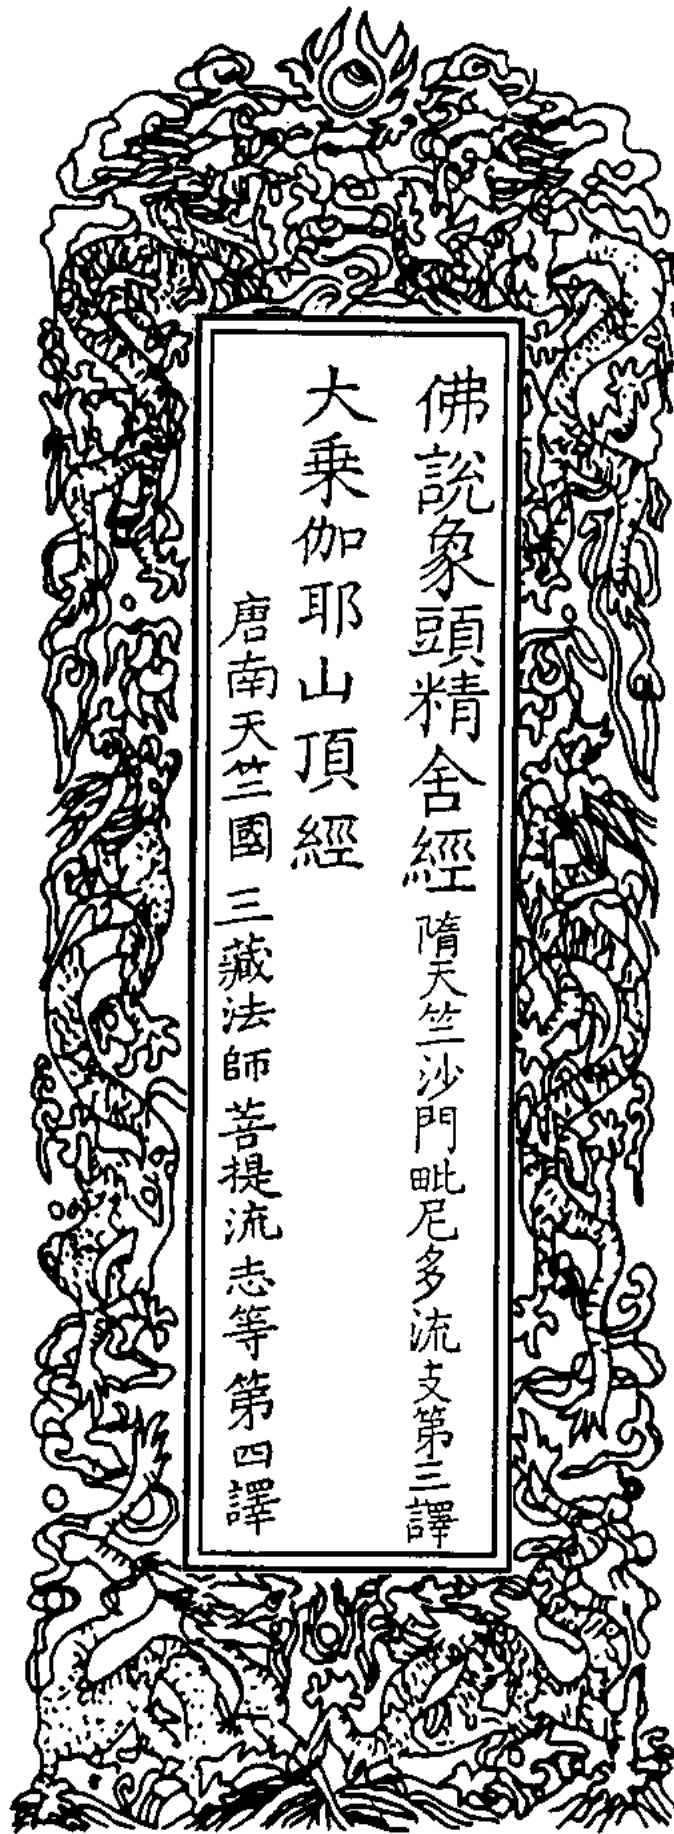 佛說象頭精舍經 隋天竺沙門毗尼多流支第三譯
大乗伽耶山頂經
唐南天竺國三藏法師菩提流志等第四譯